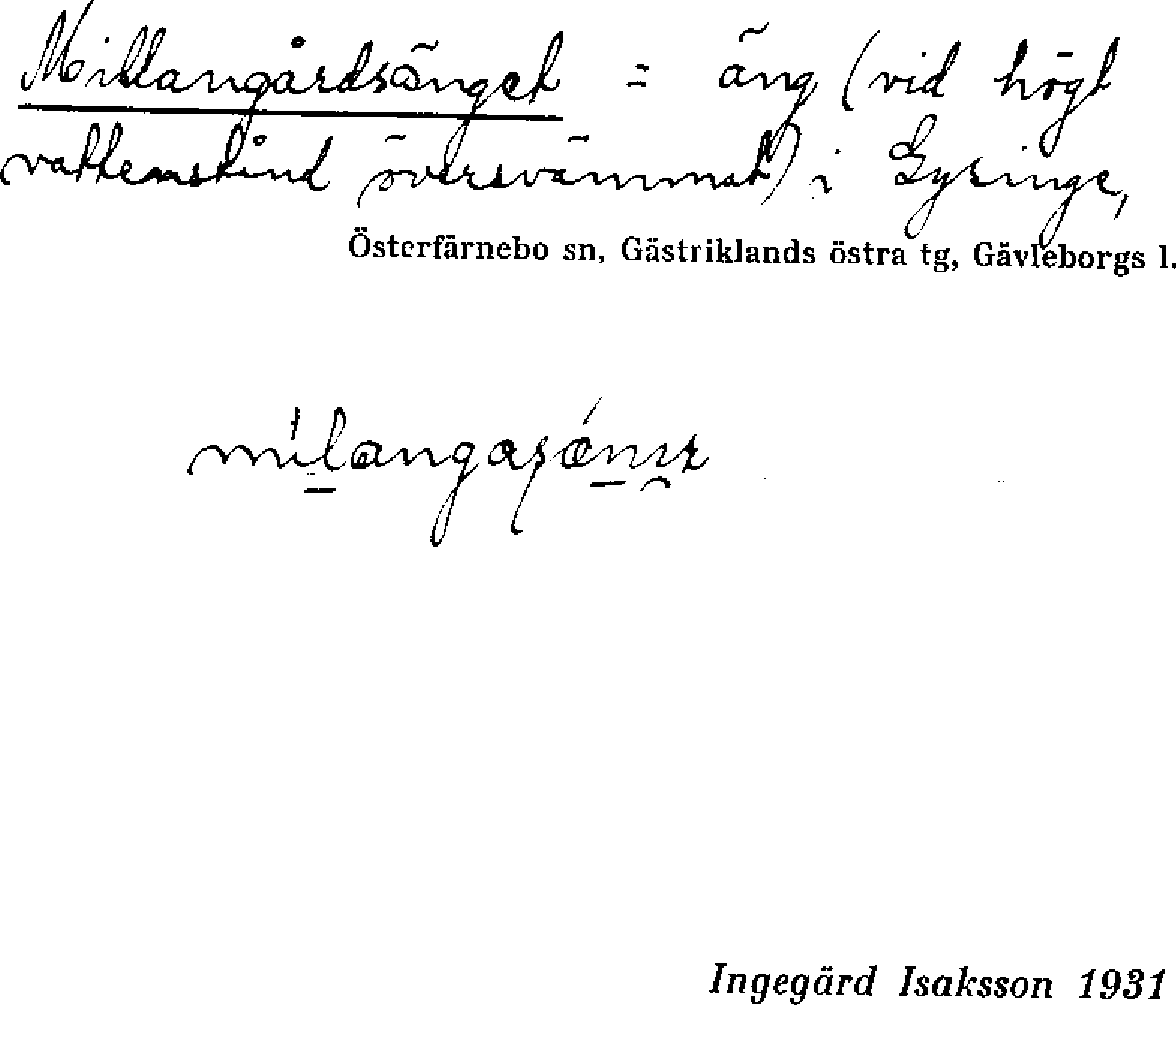 Millangårdsänget = äng (vid högt
vattenstånd översvämmat) i Gysinge,
Österfärnebo sn, Gästriklands östra tg, Gävleborgs l.
Ingegärd Isaksson 1931